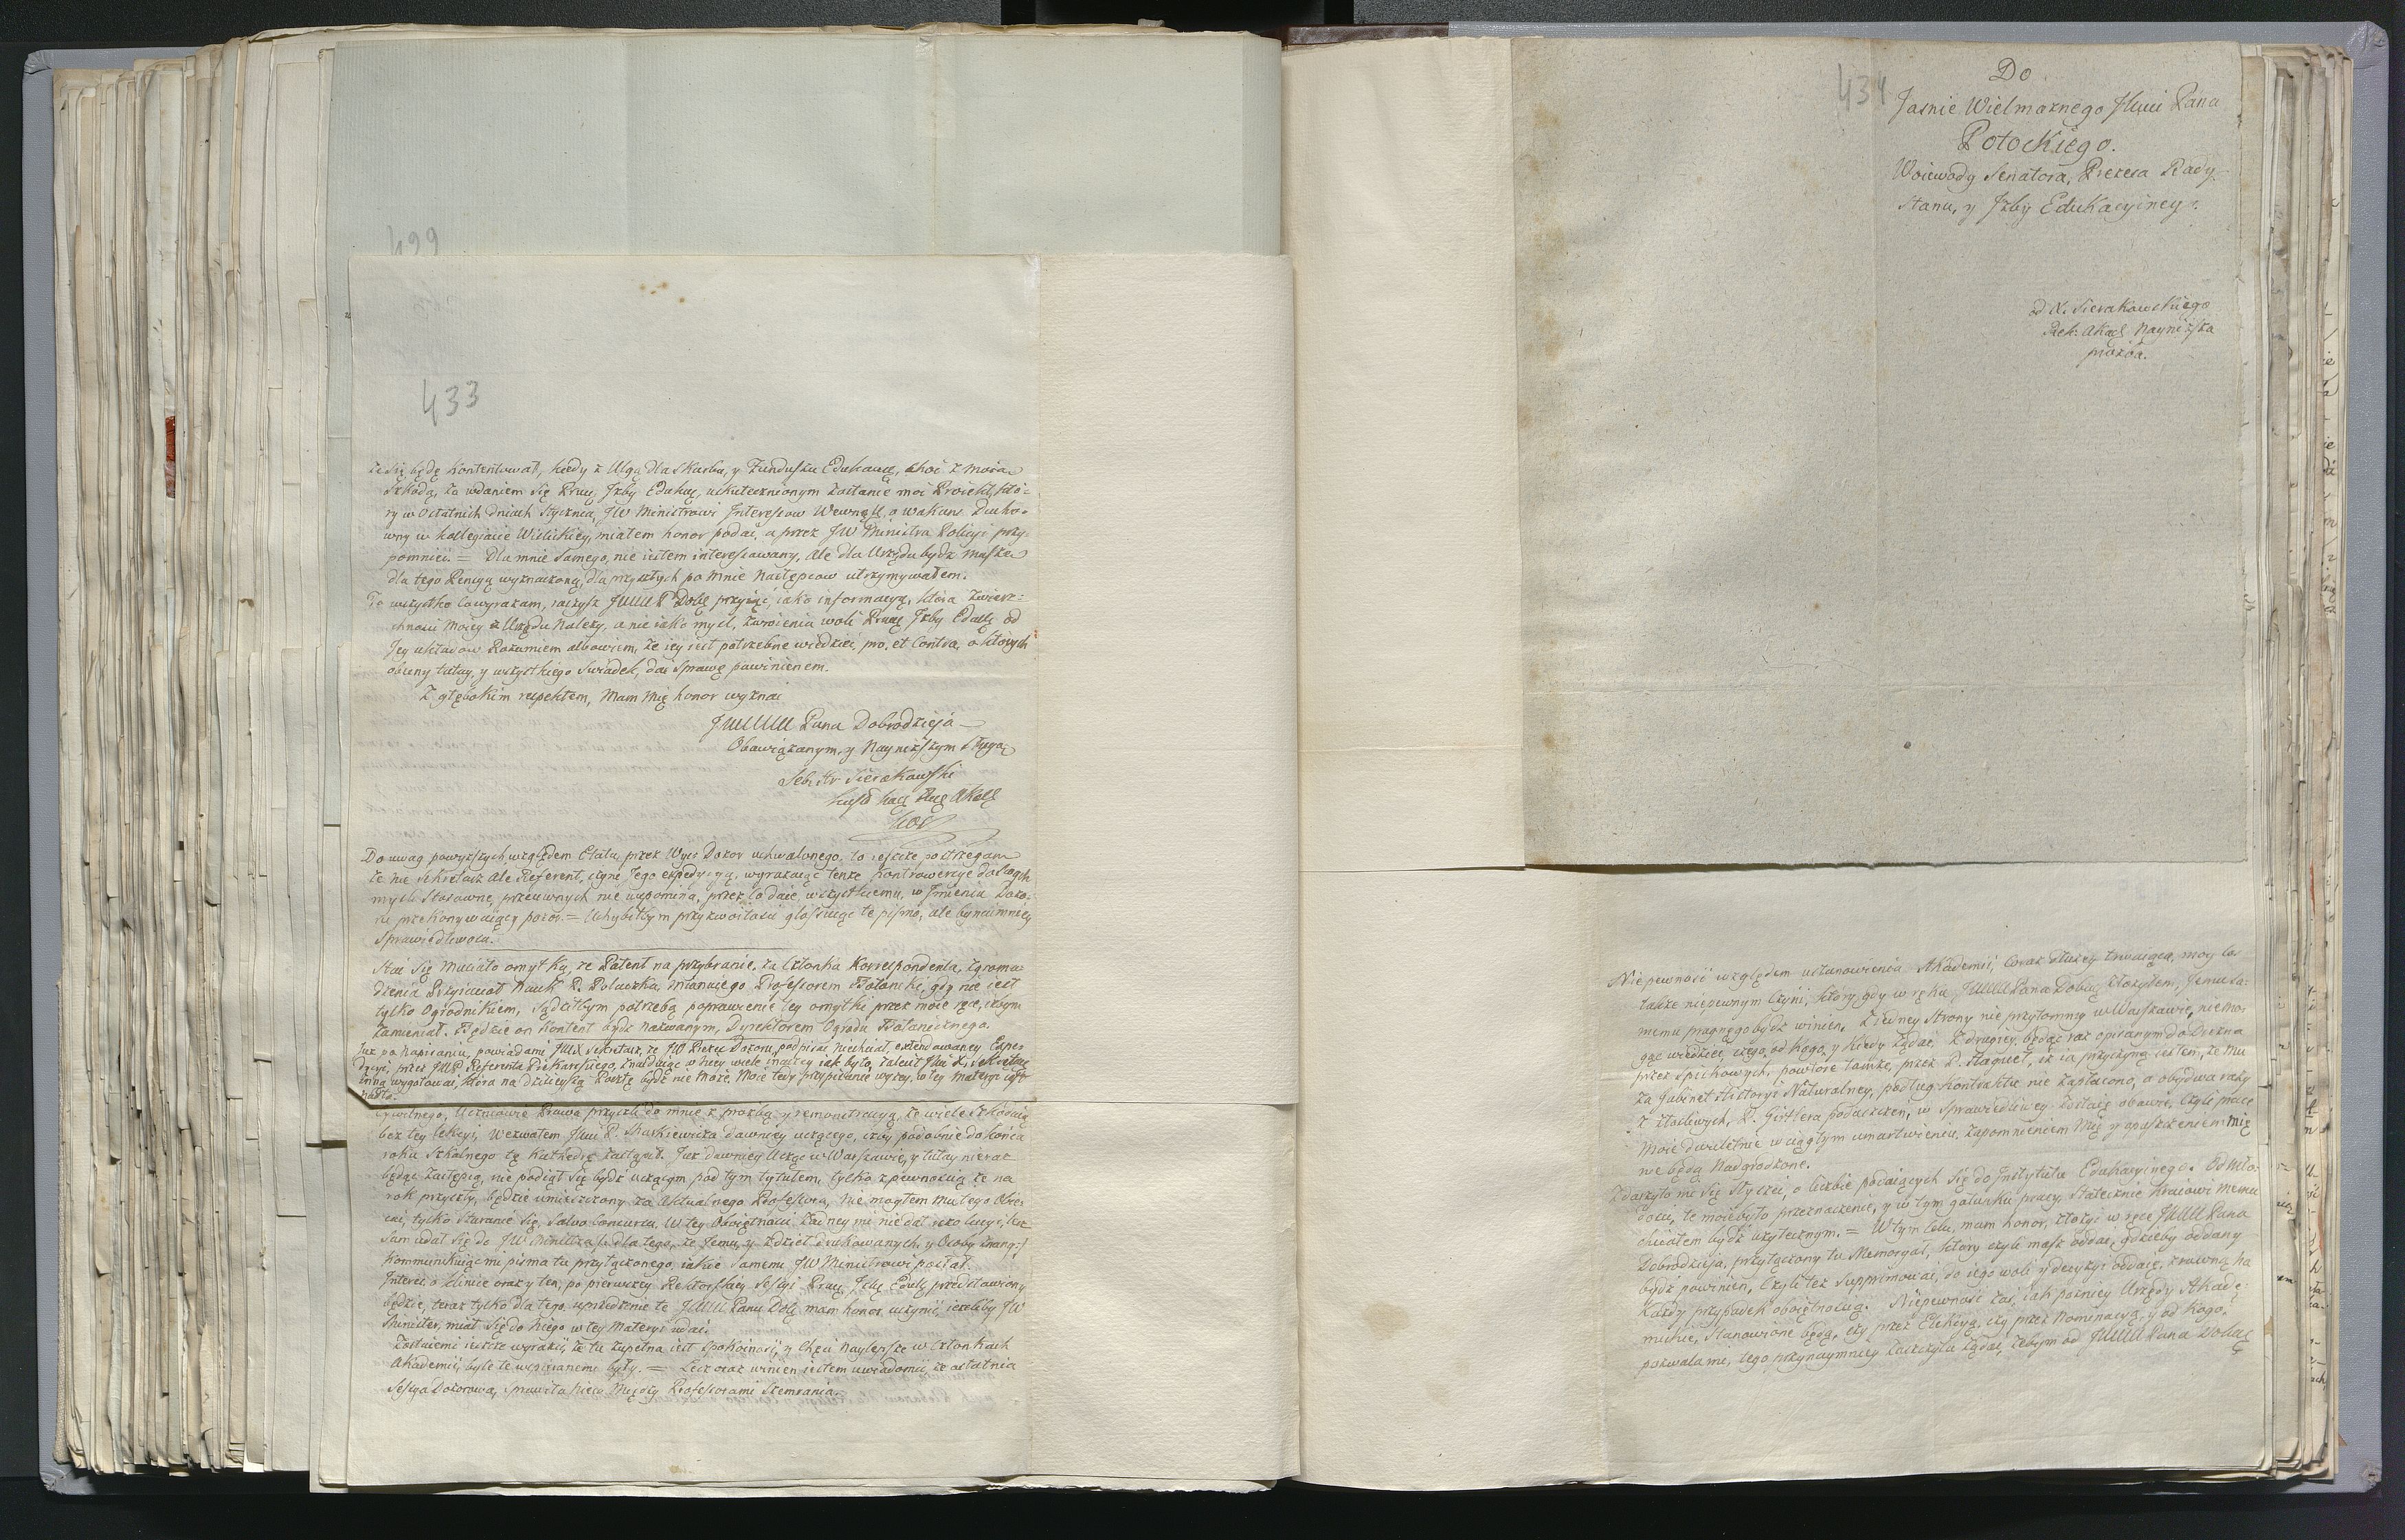 499
433
że się będę kontentował, kiedy z Ulgą dla Skarbu, y Funduszu Edukacyi, choć z moią
szkodą, za wdaniem się Przeę Izby Edukaę, uskutecznionym zostanie moi Proiekt, któ-
ry w Ostatnich dniach Stycznia, JW Ministrowi Interessow Wewnęt, o wakans Ducho-
wny w Kollegiacie Wislickiey, miałem honor podać, a przez JW Ministra Policyi przy-
pomnieć. = Dla mnie samego, nie iestem interesowany, ale dla Urzędu bydz muszę
dla tego Pensyą wyznaczoną, dla przyszłych po mnie następcow utrzymywałem.
To wszystko co wyrażam, raczysz P Dobę przyiąć, iako informacyą, która zwierz-
chności moiey z Urzędu należy, a nie iako myśl, zwrócenia woli Izby Edukę od
Jey układow Rozumiem albowiem, że iey iest potrzebne wiedzieć, pro, et contra, o których
obecny tutay, y wszystkiego swiadek, dać sprawę powinienem.
Z głębokim respektem, Mam Mię honor wyznać
Pana Dobrodzieja
Obowiązanym, y Nayniższym Sługą
Seb. Hr Sierakowski
Do uwag powyższych, względem Etatu, przez Wyż: Dozor uchwalonego, to ieszcze postrzegam
że nie Sekretarz ale Referent, iego expedycyą, wyrażaiąc tenże Kontrowersye do swych
mysli stosowne, przeciwnych nie wspomina, przez co daie wszystkiemu, w Imieniu Dozo-
ru przekonywaiący pozor. = Uchybiłbym przyzwoitości glossuiąc te pismo, ale bynaimniey
Sprawiedliwosci.
Stać się musiało omyłką, że Patent na przybranie, za Członka Korrespondenta, Zgroma-
dzenia Przyiacioł Nauk P. mianuiego Professorem Botaniki, gdy nie iest
tylko Ogrodnikiem, Sądziłbym potrzebą poprawienie tey omyłki przez moie ręce, ktorym
zamieniał. Będzie on kontent bydz nazwanym, Dyrektorem Ogrodu Botanicznego.
Juz po napisaniu, powiada mi Sekretarz, że JW Prezes Dozoru, podpisać niechciał, extendowaney Expe-
dycyi, przez Referenta znayduiąc w niey wiele inaczey iak było, zalecił Sekretarz
inną wygotować, która na dzisieyszą Pocztę bydz nie może, Moie tedy przypisanie wyzey, w tey materyi iest
Cywilnego, Uczniowie Prawa przyszli do mnie z prozbą y remonstracyą, że wiele szkoduią
bez tey lekcyi, wezwałem P. dawniey uczącego, czyby podobnie do końca
roku szkolnego tę Kathedrę zastąpił. Juz dawniey ucząc w Warszawie, y tutay nieraz
będąc Zastępcą, nie podiął się bydz uczącym pod tym tytułem, tylko z pewnoscią że na
rok przyszły, będzie umieszczony za Aktualnego Professora, Nie mogłem mu tego obie-
cać, tylko staranie się, Salvo Concursu. W tey żadney mi nie dał rezolucyi, lecz
sam udał się do JW Ministra /: dla tego, że Jemu, y z dzieł drukowanych, y Osoby znany :/
Kommunikuiąc mi pisma tu przyłączonego, iakie samemu JW Ministrowi posłał.
Interes o Klinice oraz y ten, po pierwszey Rektorskiey Sessyi Izbę Edukę przedstawiony
będzie, teraz tylko dla tego uprzedzenie te Panu Dobę mam honor uczynić, iezeliby JW
Minister, miał się do niego w tey Materyi udać.
Zostaiemi ieszcze wyrazić, że tu zupełna iest spokoiność, y chęci naylepsze w Członkach
Akademii, byle te wspieranemi były. = Lecz oraz winien iestem uwiadomić, że ostatnia
Sessya Dozorowa, sprawiła nieco Między Professorami szemrania.
434
Do
Jasnie Wielmożnego Jmci Pana
Potockiego.
Woiewody Senatora, Prezesa Rady
Stanu, y Izby Edukacyiney.
od X. Sierakowskiego
Rek: Akad: Nayniższa
prozba.
Niepewność względem ustanowienia Akademii, coraz dłużey trwaiąca, moy los
także niepewnym czyni, który, gdy w ręku Pana Dobrę złożyłem, Jemu sa-
memu pragnę go bydz winien. Z iedney strony nie przytomny w Warszawie, nie mo-
gąc wiedzieć czego, od kogo, y kiedy żądać, Z drugiey, będąc raz opisanym do Drezna
przez powtóre tamże, przez P. Haquet, iż ia przyczyną iestem, że mu
za Gabinet Historyi Naturalney, podług Kontraktu nie zapłacono, o obydwa razy
z złośliwych, P. podaszczeń, w sprawiedliwey zostaię obawie, czyli prace
Moie dwuletnie w ciągłym umartwieniu, zapomnieniem Mię y opuszczeniem mię
nie będą nadgrodzone.
Zdarzyło mi się słyszeć, o liczbie podaiących się do Instytutu Edukacyinego. Od mło-
dości, te moie było przeznaczenie, y w tym gatunku pracy, statecznie Kraiowi memu
chciałem bydz użytecznym. = W tym celu, mam honor, złożyć w ręce Pana
Dobrodzieja, przyłączony tu Memoryał, który czyli masz oddać, gdzieby oddany
bydz powinien, czyli też supprimować, do iego woli y decyzyi oddaię, z rowną na
każdy przypadek oboiętnoscią. Niepewność zaś, iak pozniey Urzędy Akade-
miczne, stanowione będą, czy przez Elekcyą, czy przez Nominacyą, y od kogo,
pozwala mi, tego przynaymniey zaszczytu żądać, żebym od Pana Dobrę